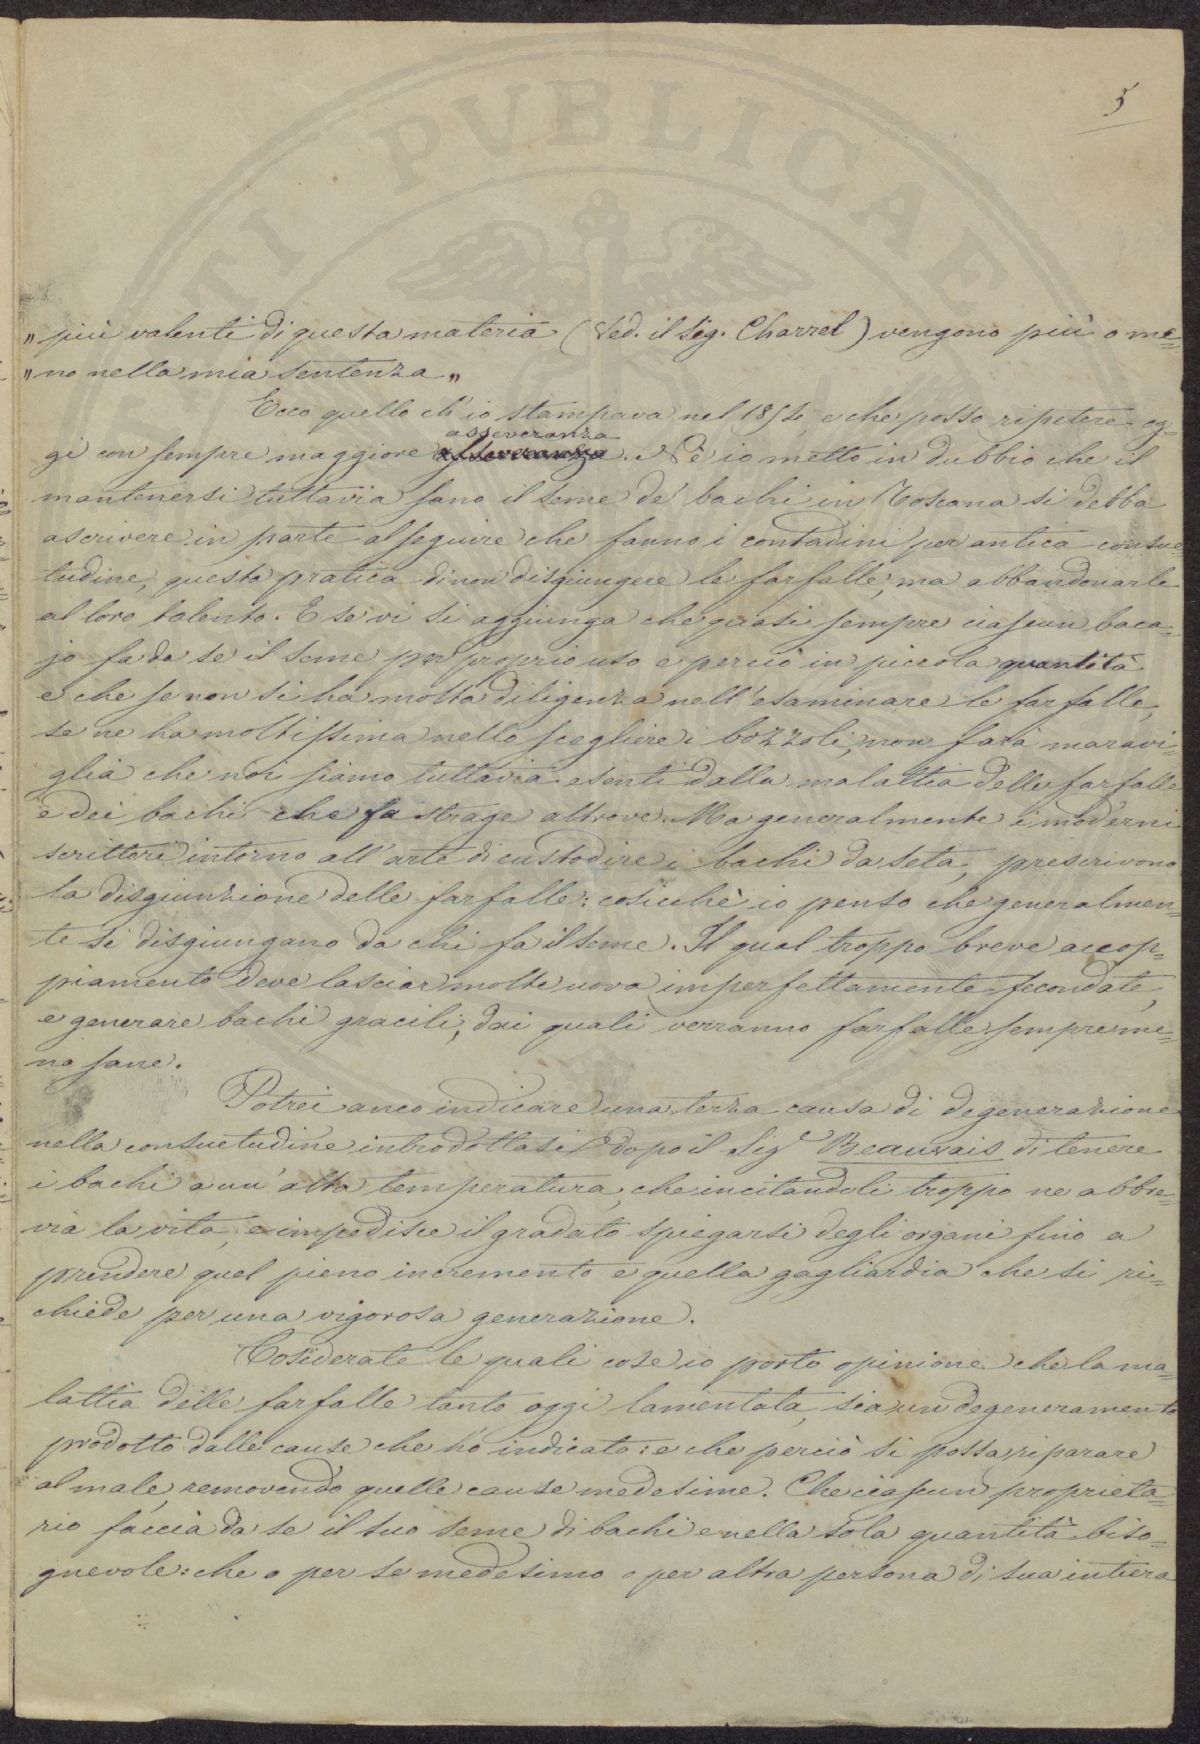 5
TI PVBLICAE
„ più valenti di questa materia (Ved. il Sig. Charrel) vengono più o me=
„ no nella mia sentenza „
Ecco quello ch'io stampava nel 1854, e che posso ripetere og=
asseveranza
gi con sempre maggiore asseveranza. Nè io metto in dubbio che il
mantenersi tuttavia sano il seme de' bachi in Toscana si debba
ascrivere in parte al seguire che fanno i contadini per antica consue
tudine, questa pratica di non disgiungere le farfalle, ma abbandonarle
al loro talento. E se vi si aggiunga che quasi sempre ciascun baca=
jo fa da se il seme per proprio uso e perciò in piccola quantità
e che se non si ha molta diligenza nell'esaminare le farfalle,
se ne ha moltissima nello scegliere i bozzoli, non farà maravi=
glia che noi siamo tuttavia esenti dalla malattia delle farfalle
e dei bachi che fa strage altrove. Ma generalmente i moderni
scrittori intorno all'arte di custodire i bachi da seta, prescrivono
la disgiunzione delle farfalle: cosicchè io penso che generalmen=
te si disgiungano da chi fa il seme. Il qual troppo breve accop=
piamento deve lasciar molte uova imperfettamente fecondate,
e generare bachi gracili, dai quali verranno farfalle sempre me=
no sane.
Potrei anco indicare una terza causa di degenerazione
nella consuetudine introdottasi dopo il Sigr Beauvais di tenere
i bachi a un'alta temperatura, che incitandoli troppo ne abbre=
via la vita, e impedisce il gradato spiegarsi degli organi fino a
prendere quel pieno incremento e quella gagliardia che si ri=
chiede per una vigorosa generazione.
Cosiderate le quali cose io porto opinione che la ma=
lattia delle farfalle tanto oggi lamentata, sia un degeneramento
prodotto dalle cause che hò indicato: e che perciò si possa riparare
al male, removendo quelle cause medesime. Che ciascun proprieta=
rio faccia da se il suo seme di bachi e nella sola quantità biso=
gnevole: che o per se medesimo o per altra persona di sua intiera